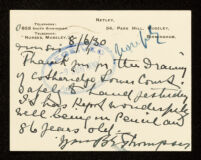 NETLEY,
TELEPHONE: 
853 SOUTH BIRMINGHAM. 56, PARK HILL, MOSELEY,
TELEGRAMS: 
"NURSES, MOSELEY." BIRMINGHAM.
8/6/30
Thank you for the Drawing
of Cotheridge Lower Court
Safely to hand yesterday
It has kept wonderfully
well being in Pencil and
86 years old.
Thompson